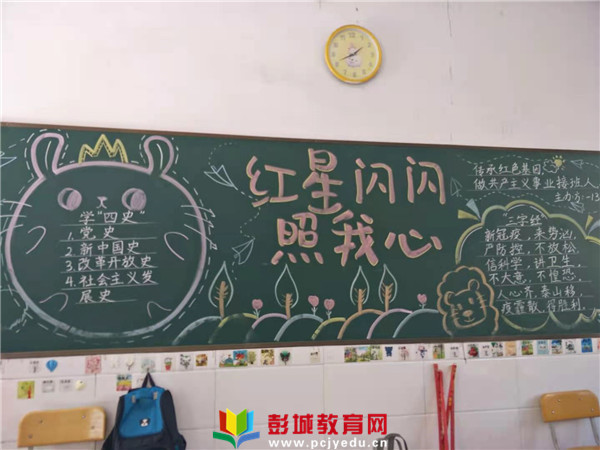 红星闪闪
照我心
学"四史"
1.党史
2.新中国史
3.改革开放史
4.社会主义发
展史
传承红色基因
做共产主义事业接班人
"三字经"
新冠疫，来势汹，
严防控，不放松，
信科学，讲卫生，
不大意，不惶恐，
人心齐，泰山移，
疫霾散，得胜利
彭城教育网
www.pcjyedu.cn